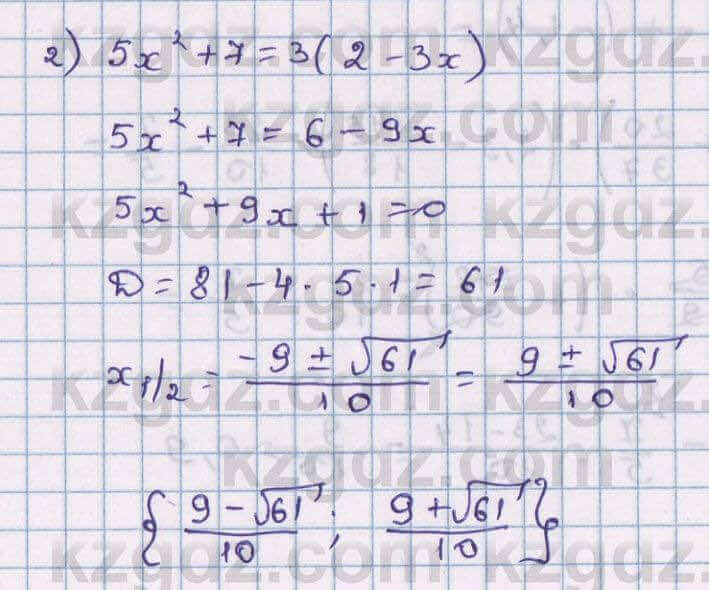 2) 5x² + 7 = 3(2 - 3x)
5x² + 7 = 6 - 9x
5x² + 9x + 1 = 0
D = 81 - 4 · 5 · 1 = 61
x₁/₂ = (-9 ± √61)/10 = (9 ± √61)/10
{(9 - √61)/10 ; (9 + √61)/10}
kzgdz.com